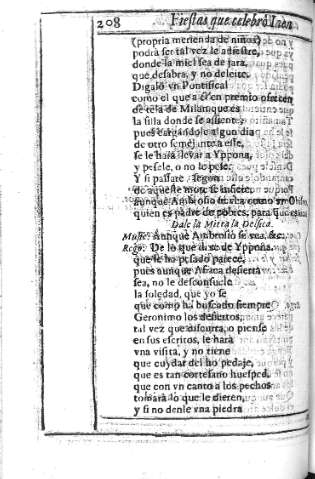 208 Fiestas que celebrò Iaen
(propria merienda de niños)
podrà ser tal vez le adiestre,
donde la miel sea de jara,
que desabra, y no deleite.
Digalo vn Pontifical
como el que a èl en premio ofrecen
de tela de Milan que es
la silla donde se assiente,
pues cargandole algun dia
de otro semejante a este,
se le harà llevar a Yppona,
y pesele, o no le pese.
Y si passare, segun
de aqueste monte se infiere,
aunque Ambrosio se vea como vn
quien es padre de pobres, para que
Dale la Mitra la Delfica.
Musi. Aunque Ambrosio se vea, &c.
Rego. De lo que dixe de Yppona
que le ha pesado parece,
pues aunque Africa desierta
sea, no le desconsuele
la soledad, que yo se
que como ha buscado siempre
Geronimo los desiertos,
tal vez que discurra, o piense
en sus escritos, le harà
vna visita, y no tiene
que cuydar del hospedaje,
que es tan cortesano huesped,
que con vn canto a los pechos
tomarà lo que le dieren,
y si no denle vna piedra